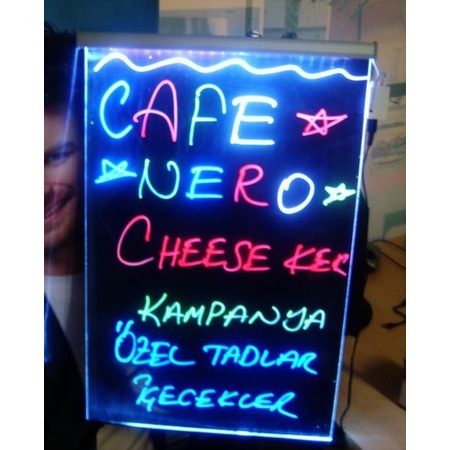 CAFE
NERO
CHEESE KEK
KAMPANYA
ÖZEL TADLAR
İÇECEKLER